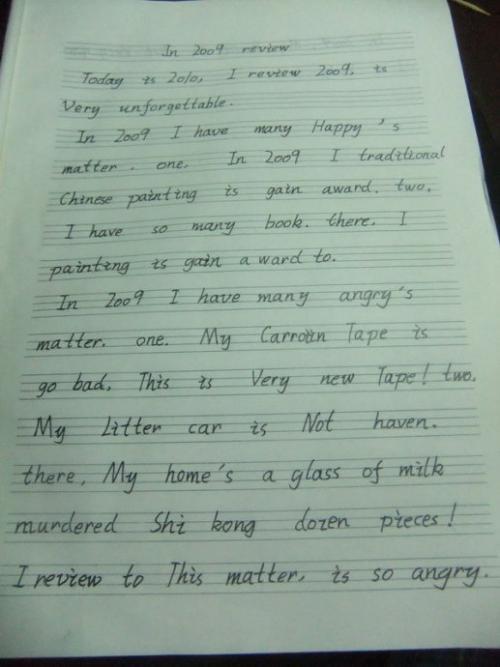 In 2009 review
Today is 2010, I review 2009, is
Very unforgettable.
In 2009 I have many Happy 's
matter. one. In 2009 I traditional
Chinese painting is gain award. two.
I have so many book. there. I
painting is gain award to.
In 2009 I have many angry's
matter. one. My Tape is
go bad, This is Very new Tape! two.
My Litter car is Not haven.
there, My home's a glass of milk
murdered Shi kong dozen pieces!
I review to This matter, is so angry.